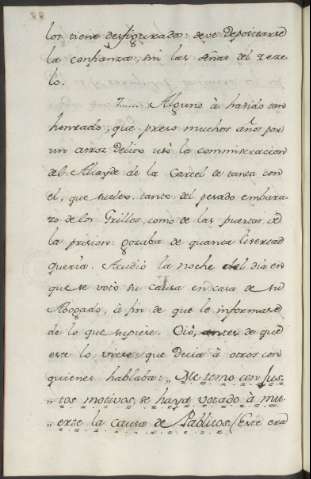 los tiene desfigurados: deve Depositarse
la confianza, sin las señas del rezelo
lo.
7..... Alguno à havido tan
honrado, que preso muchos años por
un atroz Delito usò la commiseracion
del Alcayde de la Carcel de tanta con
èl, que suelto, tanto del pesado embara-
zo de los Grillos, como de las puertas de
la prision gozaba de quanta libertad
queria. Acudiò la noche del dia en
que se votò su causa en casa de su
Abogado, à fin de que le informase
de lo que supiese. Oiò, antes de que
este lo viese, que Decia à otros con
quienes hablaba: Me temo con jus-
" tos motivos, se haya votado à mu-
" erte la Causa de Pablitos (Este era